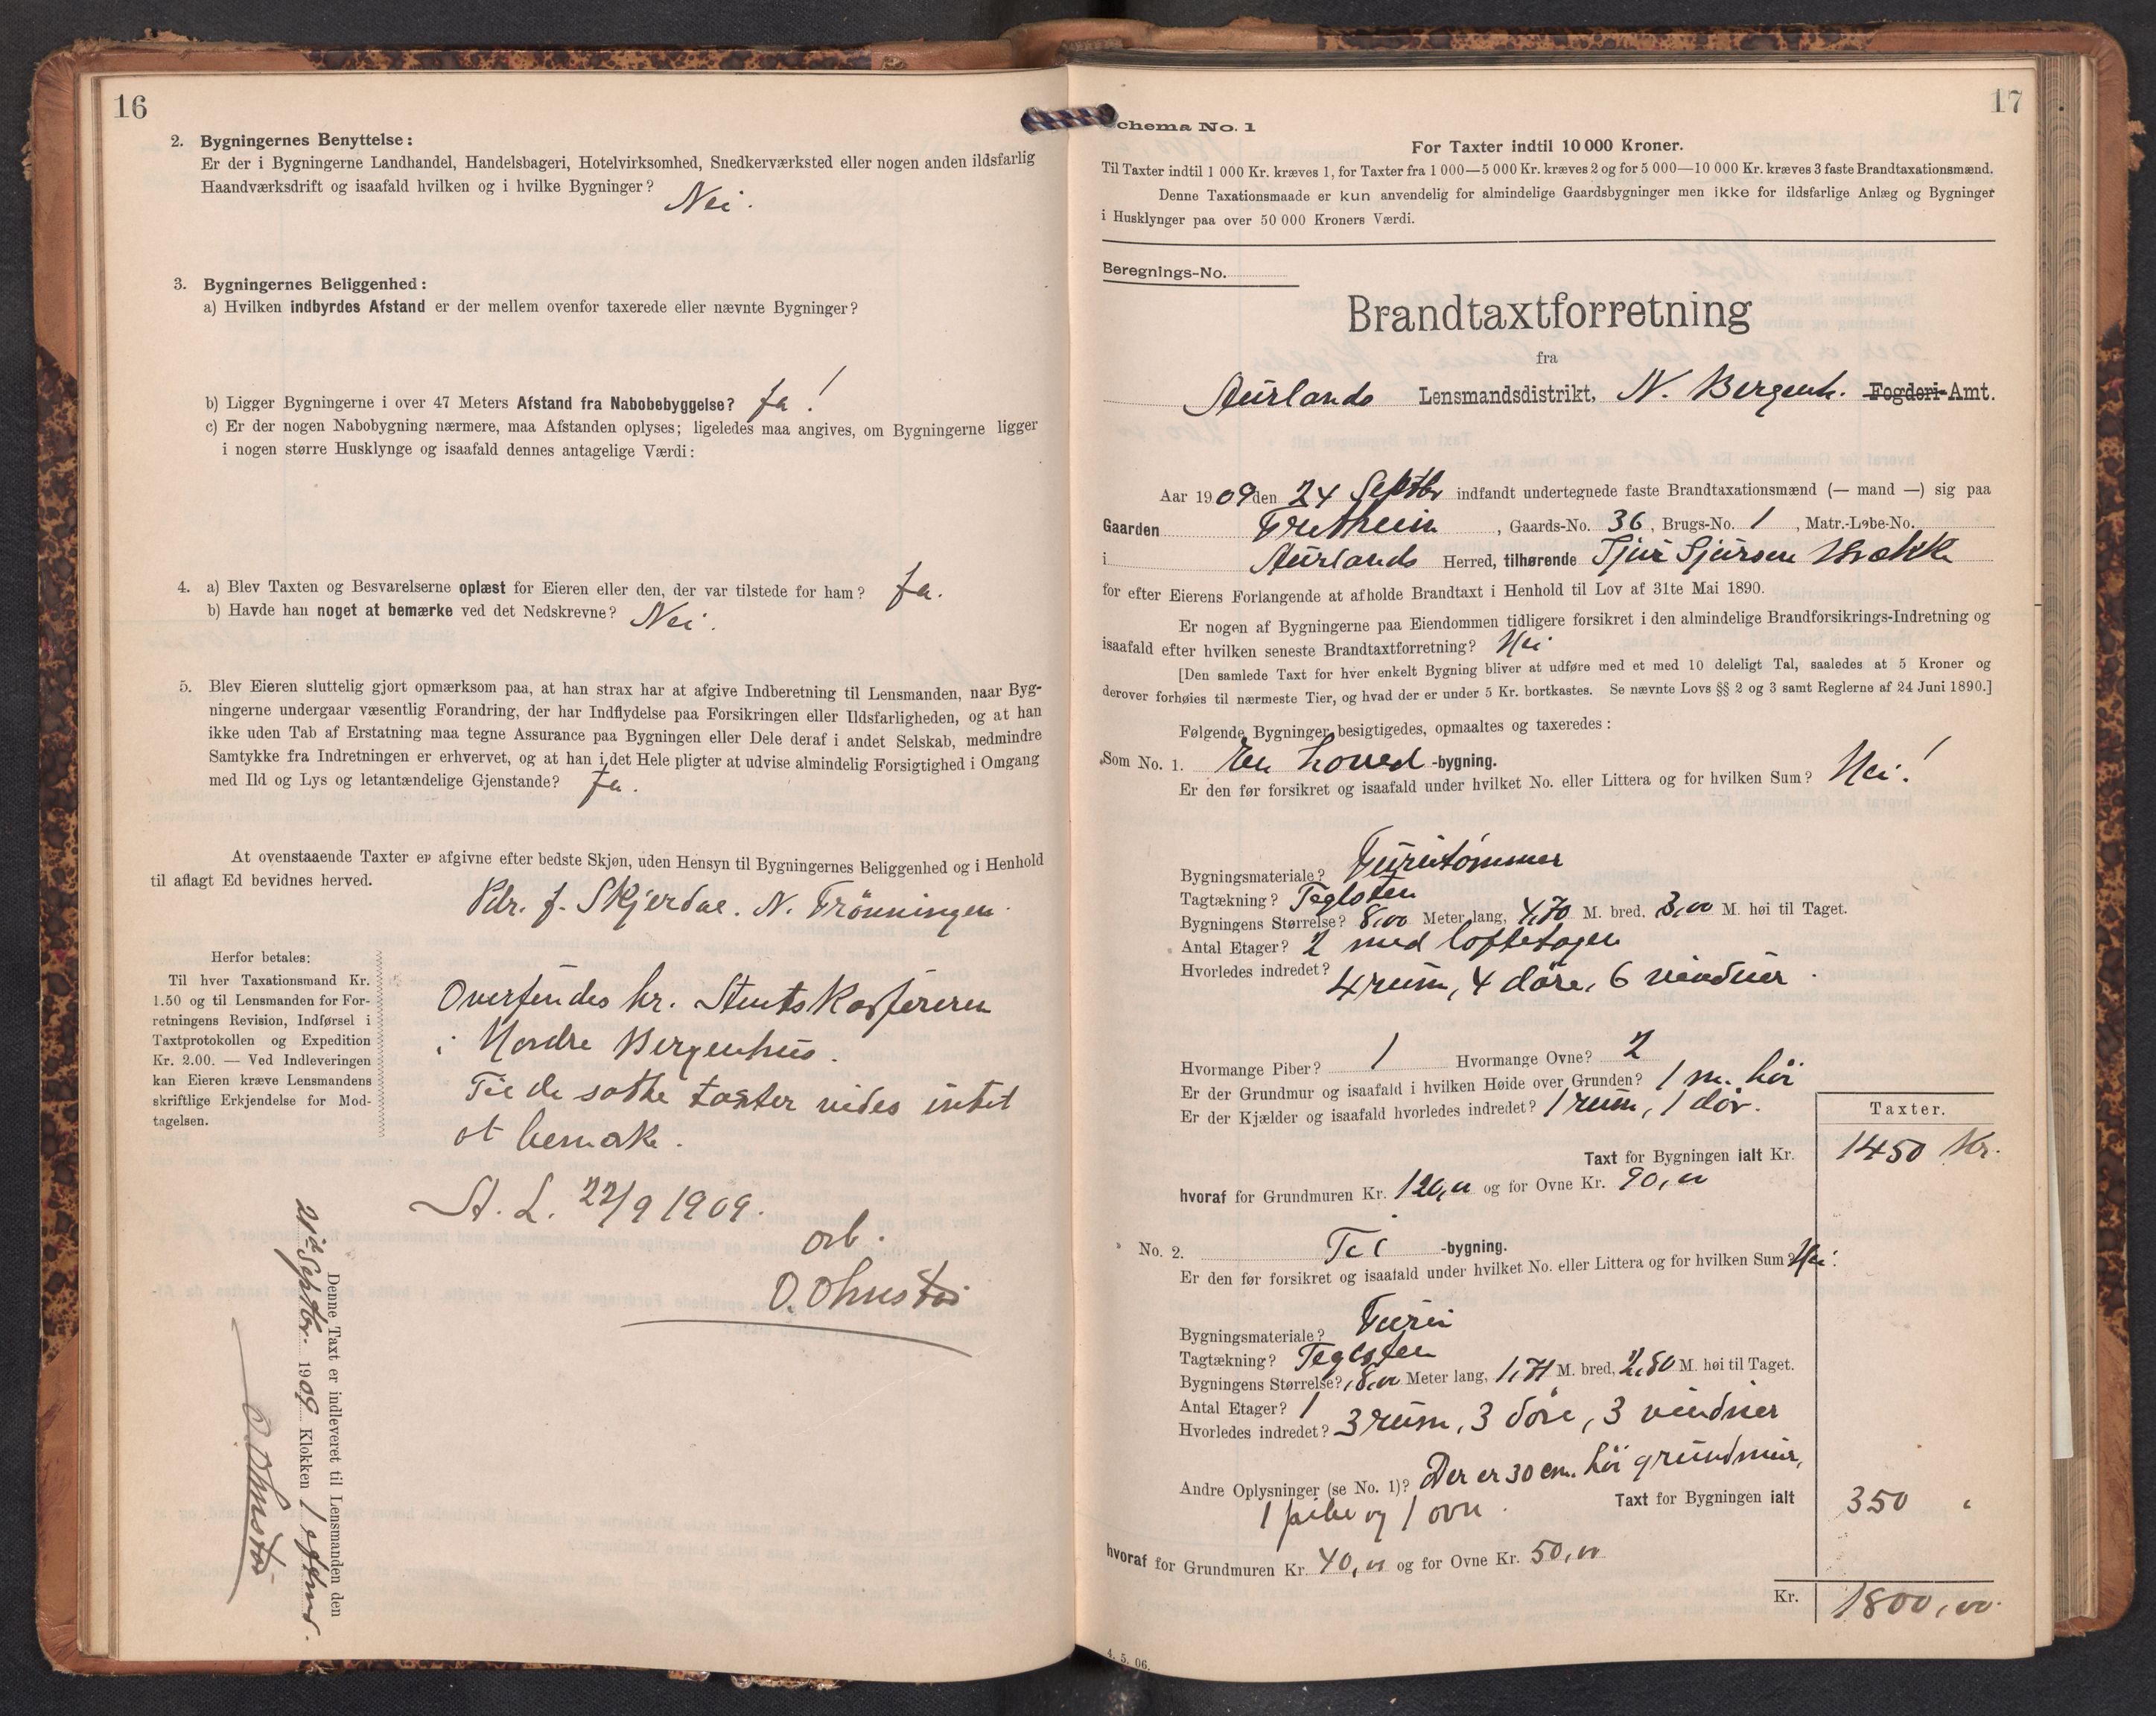 16
2. Bygningernes Benyttelse:
Er der i Bygningerne Landhandel, Handelsbageri, Hotelvirksomhed, Snedkerværksted eller nogen anden ildsfarlig
Haandværksdrift og isaafald hvilken og i hvilke Bygninger? Nei.
3. Bygningernes Beliggenhed:
a) Hvilken indbyrdes Afstand er der mellem ovenfor taxerede eller nævnte Bygninger?
b) Ligger Bygningerne i over 47 Meters Afstand fra Nabobebyggelse? Ja!
c) Er der nogen Nabobygning nærmere, maa Afstanden oplyses; ligeledes maa angives, om Bygningerne ligger
i nogen større Husklynge og isaafald dennes antagelige Værdi:
4. a) Blev Taxten og Besvarelserne oplæst for Eieren eller den, der var tilstede for ham? Ja.
b) Havde han noget at bemærke ved det Nedskrevne? Nei.
5. Blev Eieren sluttelig gjort opmærksom paa, at han strax har at afgive Indberetning til Lensmanden, naar Byg-
ningerne undergaar væsentlig Forandring, der har Indflydelse paa Forsikringen eller Ildsfarligheden, og at han
ikke uden Tab af Erstatning maa tegne Assurance paa Bygningen eller Dele deraf i andet Selskab, medmindre
Samtykke fra Indretningen er erhvervet, og at han i det Hele pligter at udvise almindelig Forsigtighed i Omgang
med Ild og Lys og letantændelige Gjenstande? Ja.
At ovenstaaende Taxter er afgivne efter bedste Skjøn, uden Hensyn til Bygningernes Beliggenhed og i Henhold
til aflagt Ed bevidnes herved.
Pdr. J. Skjerdal. N. Frönningen.
Herfor betales:
Til hver Taxationsmand Kr.
1.50 og til Lensmanden for For-
retningens Revision, Indførsel i
Taxtprotokollen og Expedition
Kr. 2.00. — Ved Indleveringen
kan Eieren kræve Lensmandens
skriftlige Erkjendelse for Mod-
tagelsen.
Oversendes hr.
i Nordre Bergenhus.
Til de satte taxter vides intet
at bemerke.
A. L. 22/9 1909.
arb.
O. Ohnstad
Denne Taxt er indleveret til Lensmanden den
21de Septbr. 1909 Klokken 1 eftm.
O. Ohnstad
17
Schema No. 1
For Taxter indtil 10 000 Kroner.
Til Taxter indtil 1 000 Kr. kræves 1, for Taxter fra 1 000—5 000 Kr. kræves 2 og for 5 000—10 000 Kr. kræves 3 faste Brandtaxationsmænd.
Denne Taxationsmaade er kun anvendelig for almindelige Gaardsbygninger men ikke for ildsfarlige Anlæg og Bygninger
i Husklynger paa over 50 000 Kroners Værdi.
Beregnings-No.
Brandtaxtforretning
fra
Aurlands Lensmandsdistrikt, N. Bergenh. Fogderi-Amt.
Aar 1909 den 24 Septbr indfandt undertegnede faste Brandtaxationsmænd (— mand —) sig paa
Gaarden Fretheim, Gaards-No. 36, Brugs-No. 1, Matr.-Løbe-No.
i Aurlands Herred, tilhørende Sjur Sjursen Brekke
for efter Eierens Forlangende at afholde Brandtaxt i Henhold til Lov af 31te Mai 1890.
Er nogen af Bygningerne paa Eiendommen tidligere forsikret i den almindelige Brandforsikrings-Indretning og
isaafald efter hvilken seneste Brandtaxtforretning? Nei
[Den samlede Taxt for hver enkelt Bygning bliver at udføre med et med 10 deleligt Tal, saaledes at 5 Kroner og
derover forhøies til nærmeste Tier, og hvad der er under 5 Kr. bortkastes. Se nævnte Lovs §§ 2 og 3 samt Reglerne af 24 Juni 1890.]
Følgende Bygninger besigtigedes, opmaaltes og taxeredes:
Som No. 1. En hoved -bygning.
Er den før forsikret og isaafald under hvilket No. eller Littera og for hvilken Sum? Nei!
Bygningsmateriale? Furutömmer
Tagtækning? Teglsten
Bygningens Størrelse? 8,00 Meter lang, 4,70 M. bred, 3,00 M. høi til Taget.
Antal Etager? 2 med loftetagen
Hvorledes indredet? 4 rum, 4 döre, 6 vinduer.
Hvormange Piber? 1 Hvormange Ovne? 2
Er der Grundmur og isaafald i hvilken Høide over Grunden? 1 m. höi
Er der Kjælder og isaafald hvorledes indredet? 1 rum, 1 dör.
Taxter.
Taxt for Bygningen ialt Kr. 1450 Kr.
hvoraf for Grundmuren Kr. 120,00 og for Ovne Kr. 90,00
No. 2. Til -bygning.
Er den før forsikret og isaafald under hvilket No. eller Littera og for hvilken Sum? Nei.
Bygningsmateriale? Furu
Tagtækning? Teglsten
Bygningens Størrelse? 8,00 Meter lang, 1,71 M. bred, 2,80 M. høi til Taget.
Antal Etager? 1
Hvorledes indredet? 3 rum, 3 döre, 3 vinduer
Andre Oplysninger (se No. 1)? Der er 30 cm. höi grundmur,
1 pibe og 1 ovn. Taxt for Bygningen ialt 350 "
hvoraf for Grundmuren Kr. 40,00 og for Ovne Kr. 50,00
Kr. 1800,00.
4. 5. 06.